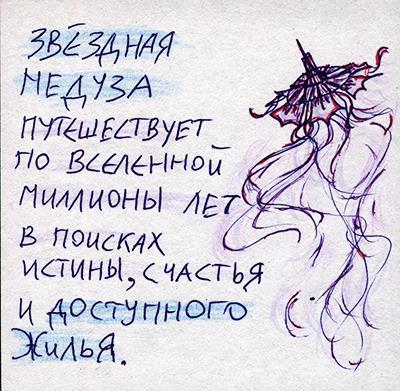 ЗВЁЗДНАЯ
МЕДУЗА
ПУТЕШЕСТВУЕТ
ПО ВСЕЛЕННОЙ
МИЛЛИОНЫ ЛЕТ
В ПОИСКАХ
ИСТИНЫ, СЧАСТЬЯ
И ДОСТУПНОГО
ЖИЛЬЯ.